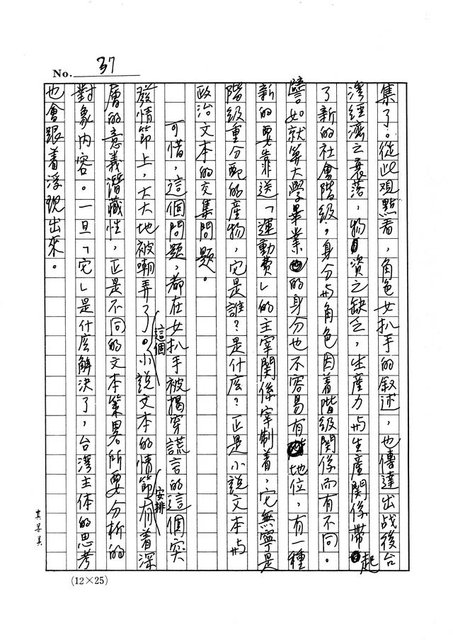 No. 37
集了。從此觀點看，角色女扒手的叙述，也傳達出战後台
灣經濟之衰落，物資之缺乏，生產力与生產關係帶起
了新的社會階級，身分与角色因着階級關係而有不同。
譬如就算大學畢業的身分也不容易有地位，有一種
新的要靠送「運動費」的主宰關係宰制着，它無寧是
階級重分配的產物，它是誰？是什庅？正是小說文本与
政治文本的交集問題。
可惜，這個問題，都在女扒手被揭穿謊言的這個突
發情節上，大大地被嘲弄了。這個小說文本的情節安排有着深
層的意義潛藏性，正是不同的文本策畧所要分析的
對象內容。一旦「它」是什庅解決了，台灣主体的思考
也會跟着浮現出來。
(12×25)